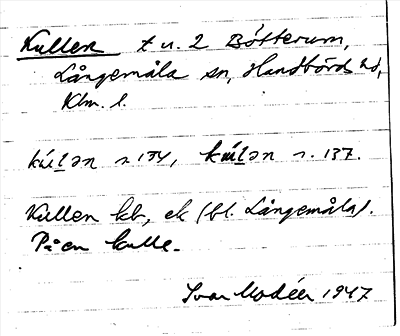 Kullen t u. 2 Bötterum,
Långemåla sn, Handbörds hd,
Klm. l.
kúlən s. 134, kúlən s. 137.
Kullen kb, ek (bl. Långemåla).
På en kulle.
Ivar Modéer 1947